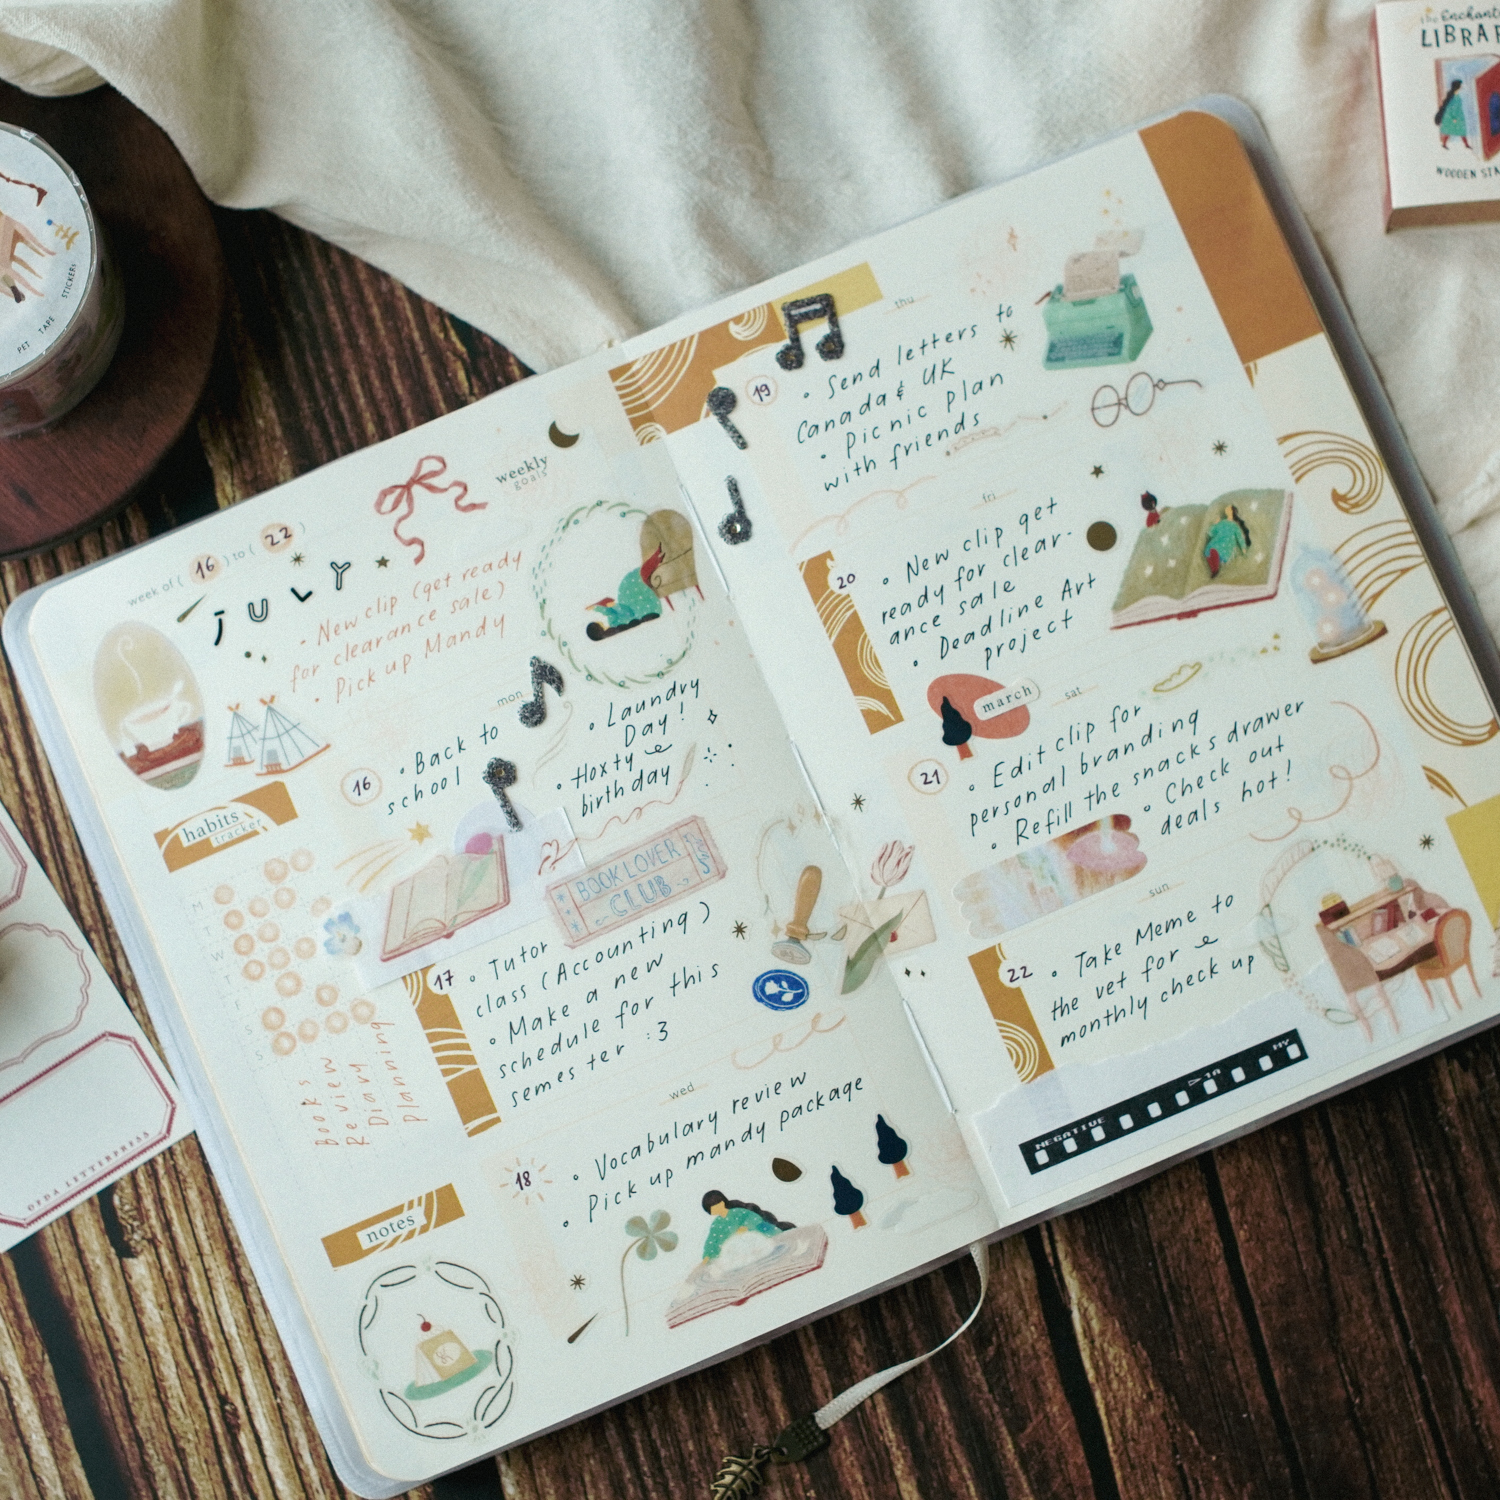 The Enchant
LIBRA
WOODEN STA
PET TAPE STICKERS
OFDA LETTERPRESS
week of ( 16 ) to ( 22 )
JULY
weekly
goals
• New clip (get ready
for clearance sale)
• Pick up Mandy
habits
tracker
M
T
W
T
F
S
S
Books
Review
Diary
planning
notes
mon
16
• Back to
school
• Laundry
Day!
• Hoxty
birthday
BOOK LOVER
CLUB
17
• Tutor
class (Accounting)
• Make a new
schedule for this
semester :3
wed
18
• Vocabulary review
• Pick up mandy package
thu
19
• Send letters to
Canada & UK
• Picnic plan
with friends
fri
20
• New clip get
ready for clear-
ance sale
• Deadline Art
project
march
sat
21
• Edit clip for
personal branding
• Refill the snacks drawer
• Check out
deals hot!
sun
22
• Take Meme to
the vet for
monthly check up
NEGATIVE